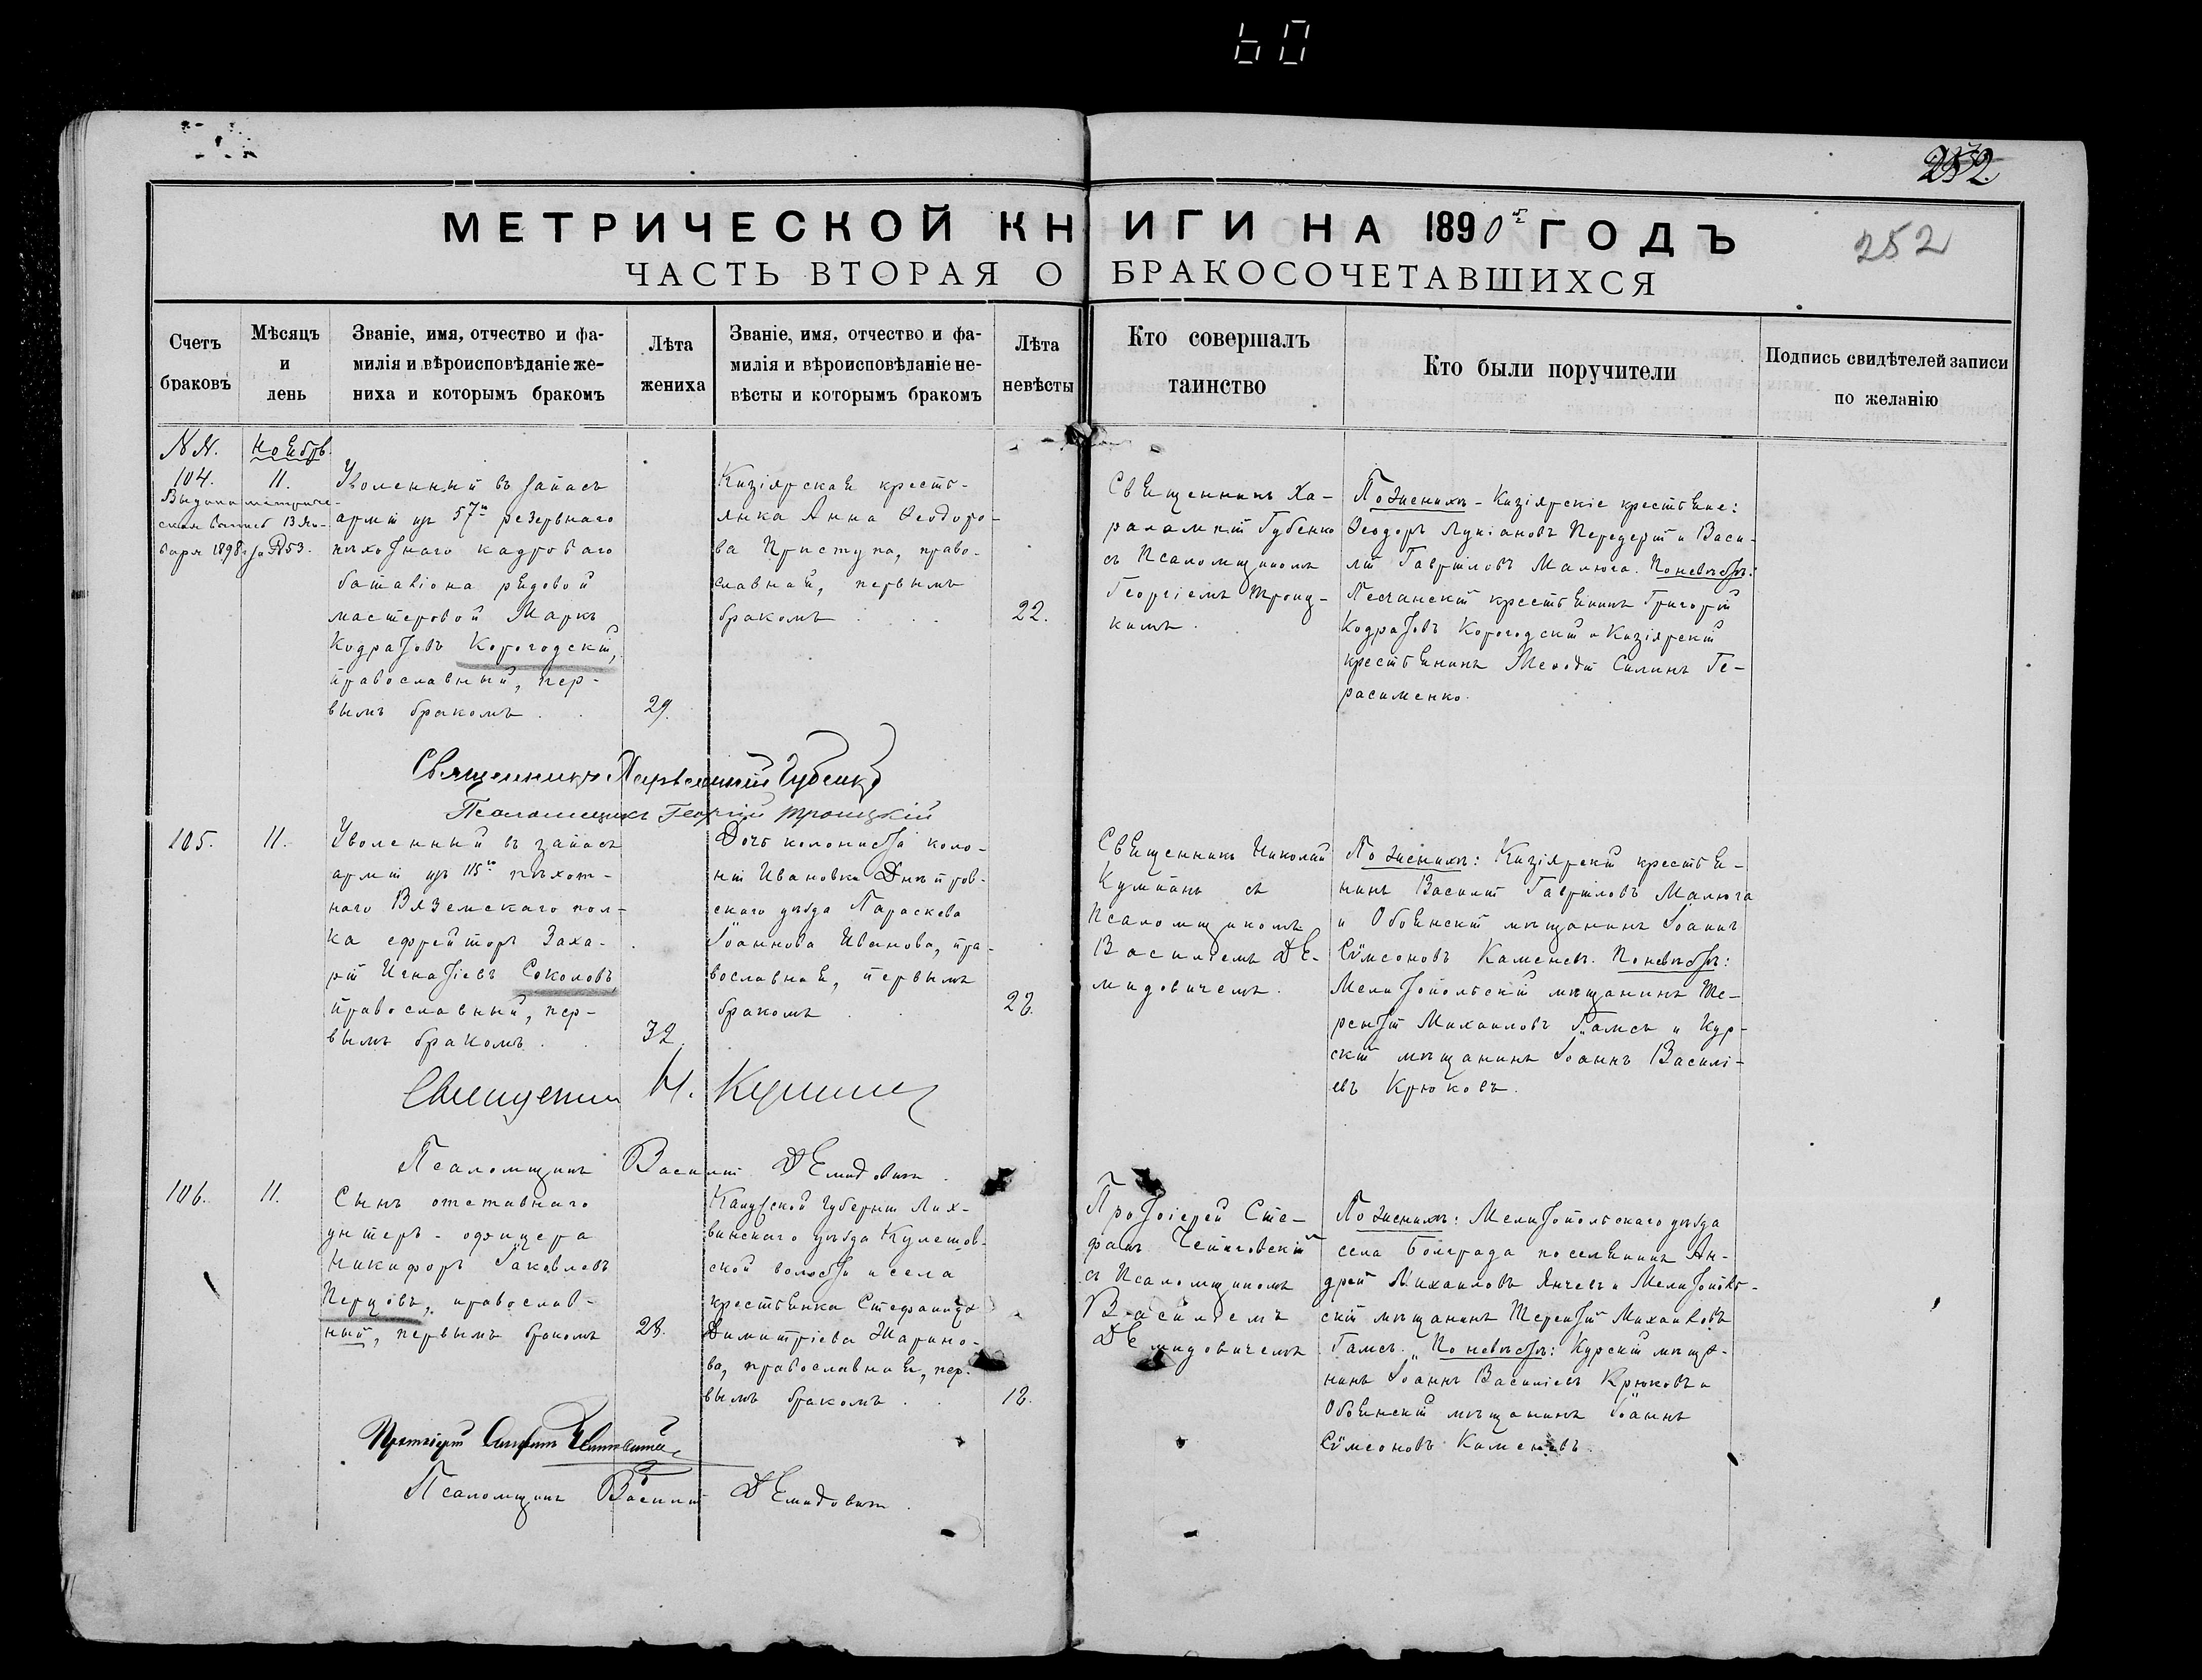 60
252
МЕТРИЧЕСКОЙ КНИГИ НА 1890й ГОДЪ
252
ЧАСТЬ ВТОРАЯ О БРАКОСОЧЕТАВШИХСЯ
Счетъ
браковъ
Мѣсяцъ
и
день
Званіе, имя, отчество и фа-
милія и вѣроисповѣданіе же-
ниха и которымъ бракомъ
Лѣта
жениха
Званіе, имя, отчество и фа-
милія и вѣроисповѣданіе не-
вѣсты и которымъ бракомъ
Лѣта
невѣсты
Кто совершалъ
таинство
Кто были поручители
Подпись свидѣтелей записи
по желанію
N N.
Ноября
104.
11.
Выдана метриче-
ская выпись 13 Ян-
варя 1898 г за №53.
Уволенный въ запасъ
арміи изъ 57го резервнаго
пѣхотнаго кадроваго
баталіона рядовой
мастеровой Маркъ
Кодратовъ Корогодскій,
православный, пер-
вымъ бракомъ
29.
Кизіярская кресть-
янка Анна Ѳеодоро-
ва Приступа, право-
славная, первымъ
бракомъ
22.
Священникъ Ха-
ралампій Губенко
съ Псаломщикомъ
Георгіемъ Троиц-
кимъ.
По женихѣ - Кизіярскіе крестьяне:
Ѳеодоръ Лукіановъ Передерій и Васи-
лій Гавріиловъ Малюга. По невѣстѣ:
Песчанскій крестьянинъ Григорій
Кодратовъ Корогодскій и Кизіярскій
крестьянинъ Меѳодій Силинъ Ге-
расименко.
Священникъ Харалампій Губенко
Псаломщикъ Георгій Троицкій
105.
11.
Уволенный въ запасъ
арміи изъ 115го пѣхот-
наго Вяземскаго пол-
ка ефрейторъ Заха-
рій Игнатіевъ Соколовъ,
православный, пер-
вымъ бракомъ
32.
Дочь колониста коло-
ніи Ивановки Днѣпров-
скаго уѣзда Параскева
Іоаннова Иванова, пра-
вославная, первымъ
бракомъ
Священникъ Николай
съ
Псаломщикомъ
Василіемъ Де-
мидовичемъ.
По женихѣ: Кизіярскій крестья-
нинъ Василій Гавріиловъ Малюга
и Обоянскій мѣщанинъ Іоаннъ
Сѵмеоновъ Каменевъ. По невѣстѣ:
Мелитопольскій мѣщанинъ Те-
рентій Михаиловъ Гамсъ и Кур-
скій мѣщанинъ Іоаннъ Василі-
евъ Крюковъ.
Священникъ Н.
Псаломщикъ Василій Демидовичъ.
106.
11.
Сынъ отставнаго
унтеръ-офицера
Никифоръ Іаковлевъ
Перцовъ, православ-
ный, первымъ бракомъ
28.
Калужской губерніи Лих-
винскаго уѣзда Кулешов-
ской волости и села
крестьянка Стефанида
Димитріева Жарино-
ва, православная, пер-
вымъ бракомъ
18.
Протоіерей Сте-
фанъ
съ Псаломщикомъ
Василіемъ
Демидовичемъ
По женихѣ: Мелитопольскаго уѣзда
села Болграда поселянинъ Ан-
дрей Михаиловъ Янчевъ и Мелитополь-
скій мѣщанинъ Терентій Михаиловъ
Гамсъ. По невѣстѣ: Курскій мѣща-
нинъ Іоаннъ Василіевъ Крюковъ и
Обоянскій мѣщанинъ Іоаннъ
Сѵмеоновъ Каменевъ.
Протоіерей
Псаломщикъ Василій Демидовичъ.